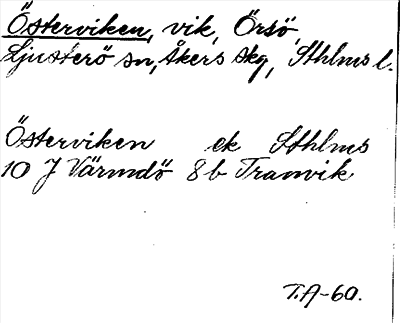 Österviken, vik, Örsö,
Ljusterö sn, Åkers skg, Sthlms l.
Österviken ek Sthlms
10 J Värmdö 8b Tranvik
T.A-60.